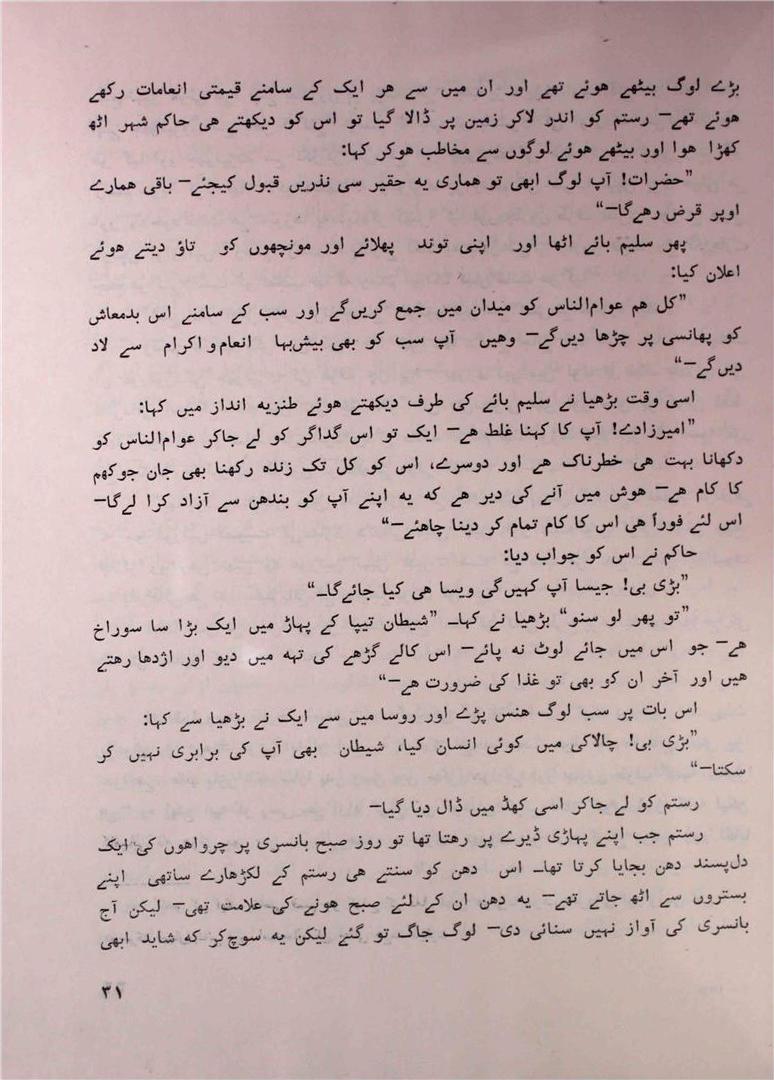 بڑے لوگ بیٹھے ھوئے تھے اور ان میں سے ھر ایک کے سامنے قیمتی انعامات رکھے
ھوئے تھے— رستم کو اندر لاکر زمین پر ڈالا گیا تو اس کو دیکھتے ھی حاکم شہر اٹھ
کھڑا ھوا اور بیٹھے ھوئے لوگوں سے مخاطب ھوکر کہا:
”حضرات! آپ لوگ ابھی تو ھماری یہ حقیر سی نذریں قبول کیجئے— باقی ھمارے
اوپر قرض رھےگا—“
پھر سلیم بائے اٹھا اور اپنی توند پھلائے اور مونچھوں کو تاؤ دیتے ھوئے
اعلان کیا:
”کل ھم عوام‌الناس کو میدان میں جمع کریں‌گے اور سب کے سامنے اس بدمعاش
کو پھانسی پر چڑھا دیں‌گے— وھیں آپ سب کو بھی بیش‌بہا انعام و اکرام سے لاد
دیں‌گے—“
اسی وقت بڑھیا نے سلیم بائے کی طرف دیکھتے ھوئے طنزیہ انداز میں کہا:
”امیرزادے! آپ کا کہنا غلط ھے— ایک تو اس گداگر کو لے جاکر عوام‌الناس کو
دکھانا بہت ھی خطرناک ھے اور دوسرے، اس کو کل تک زندہ رکھنا بھی جان جوکھم
کا کام ھے— ھوش میں آنے کی دیر ھے کہ یہ اپنے آپ کو بندھن سے آزاد کرا لےگا—
اس لئے فوراً ھی اس کا کام تمام کر دینا چاھئے—“
حاکم نے اس کو جواب دیا:
”بڑی بی! جیسا آپ کہیں‌گی ویسا ھی کیا جائےگا—“
”تو پھر لو سنو“ بڑھیا نے کہا— ”شیطان تیپا کے پہاڑ میں ایک بڑا سا سوراخ
ھے— جو اس میں جائے لوٹ نہ پائے— اس کالے گڑھے کی تہہ میں دیو اور اژدھا رھتے
ھیں اور آخر ان کو بھی تو غذا کی ضرورت ھے—“
اس بات پر سب لوگ ھنس پڑے اور روسا میں سے ایک نے بڑھیا سے کہا:
”بڑی بی! چالاکی میں کوئی انسان کیا، شیطان بھی آپ کی برابری نہیں کر
سکتا—“
رستم کو لے جاکر اسی کھڈ میں ڈال دیا گیا—
رستم جب اپنے پہاڑی ڈیرے پر رھتا تھا تو روز صبح بانسری پر چرواھوں کی ایک
دل‌پسند دھن بجایا کرتا تھا— اس دھن کو سنتے ھی رستم کے لکڑھارے ساتھی اپنے
بستروں سے اٹھ جاتے تھے— یہ دھن ان کے لئے صبح ھونے کی علامت تھی— لیکن آج
بانسری کی آواز نہیں سنائی دی— لوگ جاگ تو گئے لیکن یہ سوچ‌کر کہ شاید ابھی
۳۱